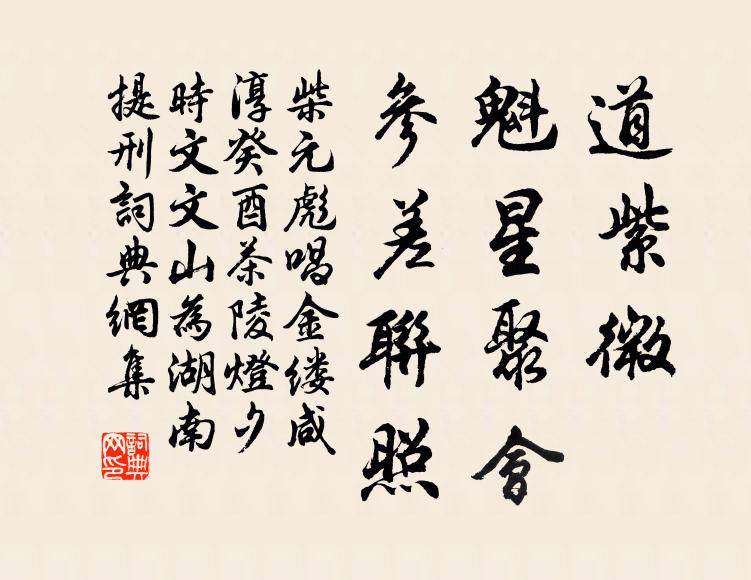 道紫微
魁星聚會
參差聯照
柴元彪唱金缕咸
淳癸酉茶陵燈夕
時文文山為湖南
提刑詞典網集
詞典網印